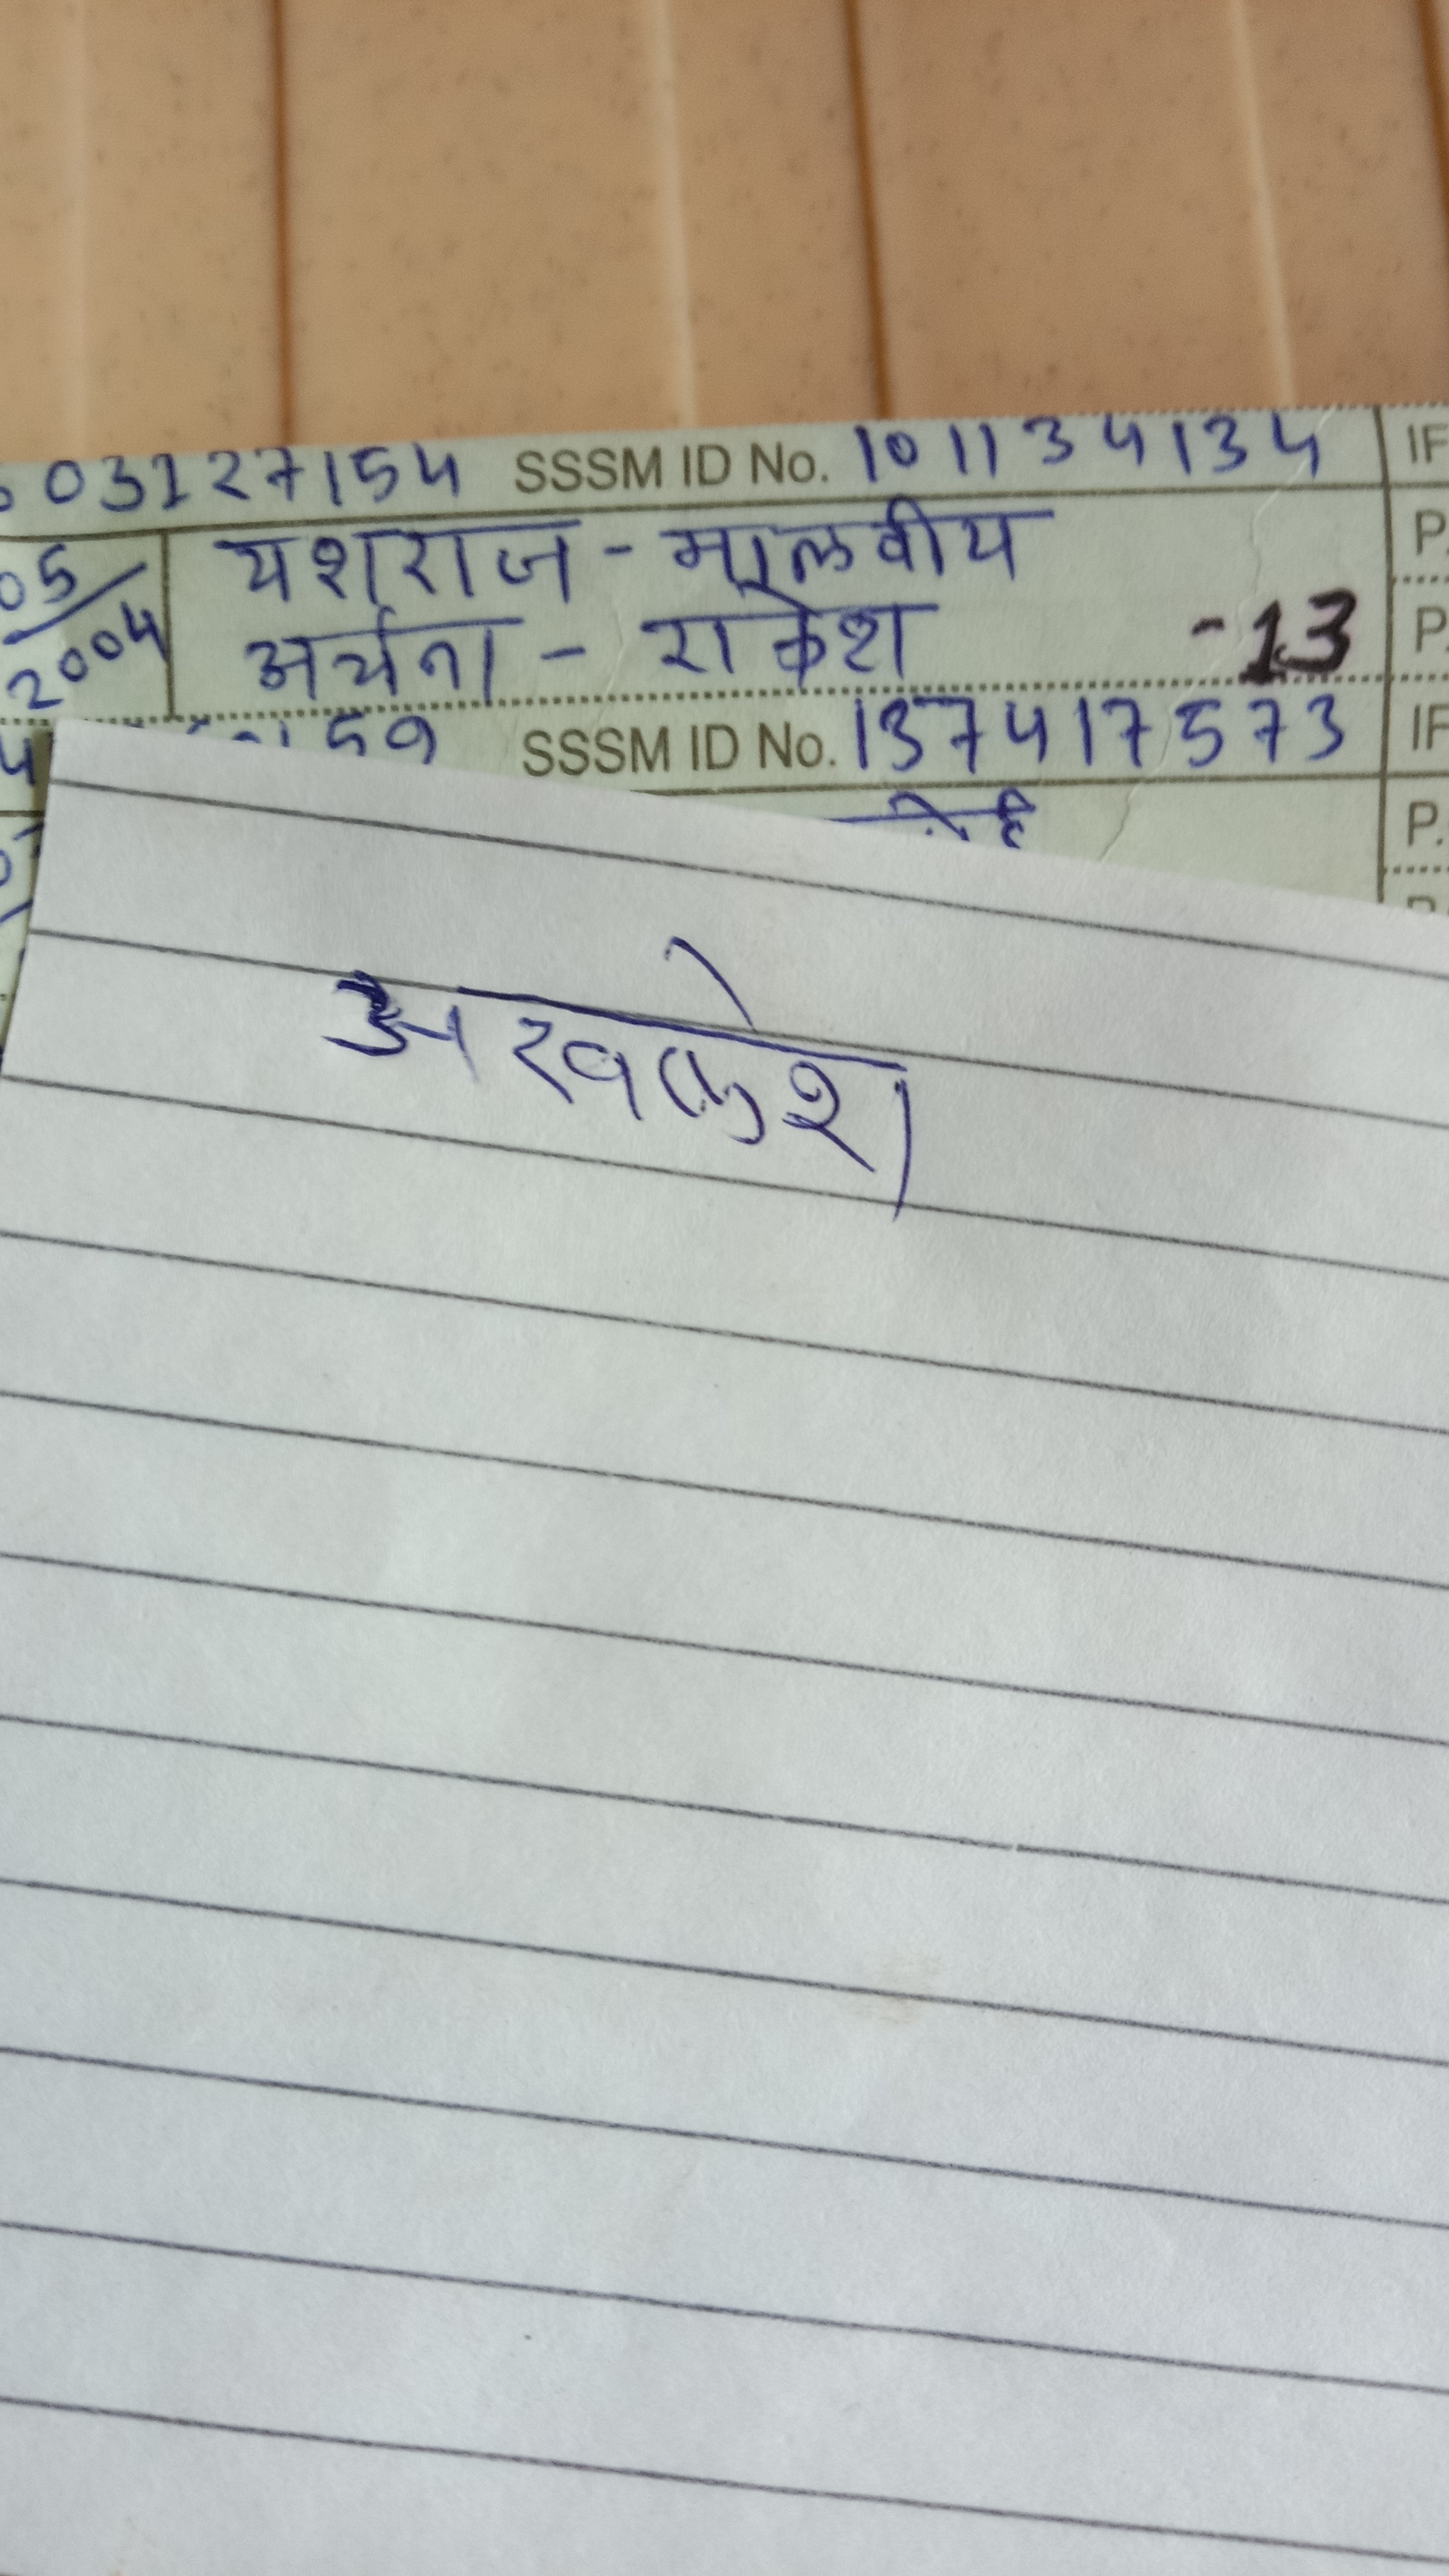 03127154 SSSM ID No. 101134134 IF
05/2004 यशराज - मालवीय P.
अर्चना - राकेश -13 P.
59 SSSM ID No. 137417573 IF
P.
अखकेश